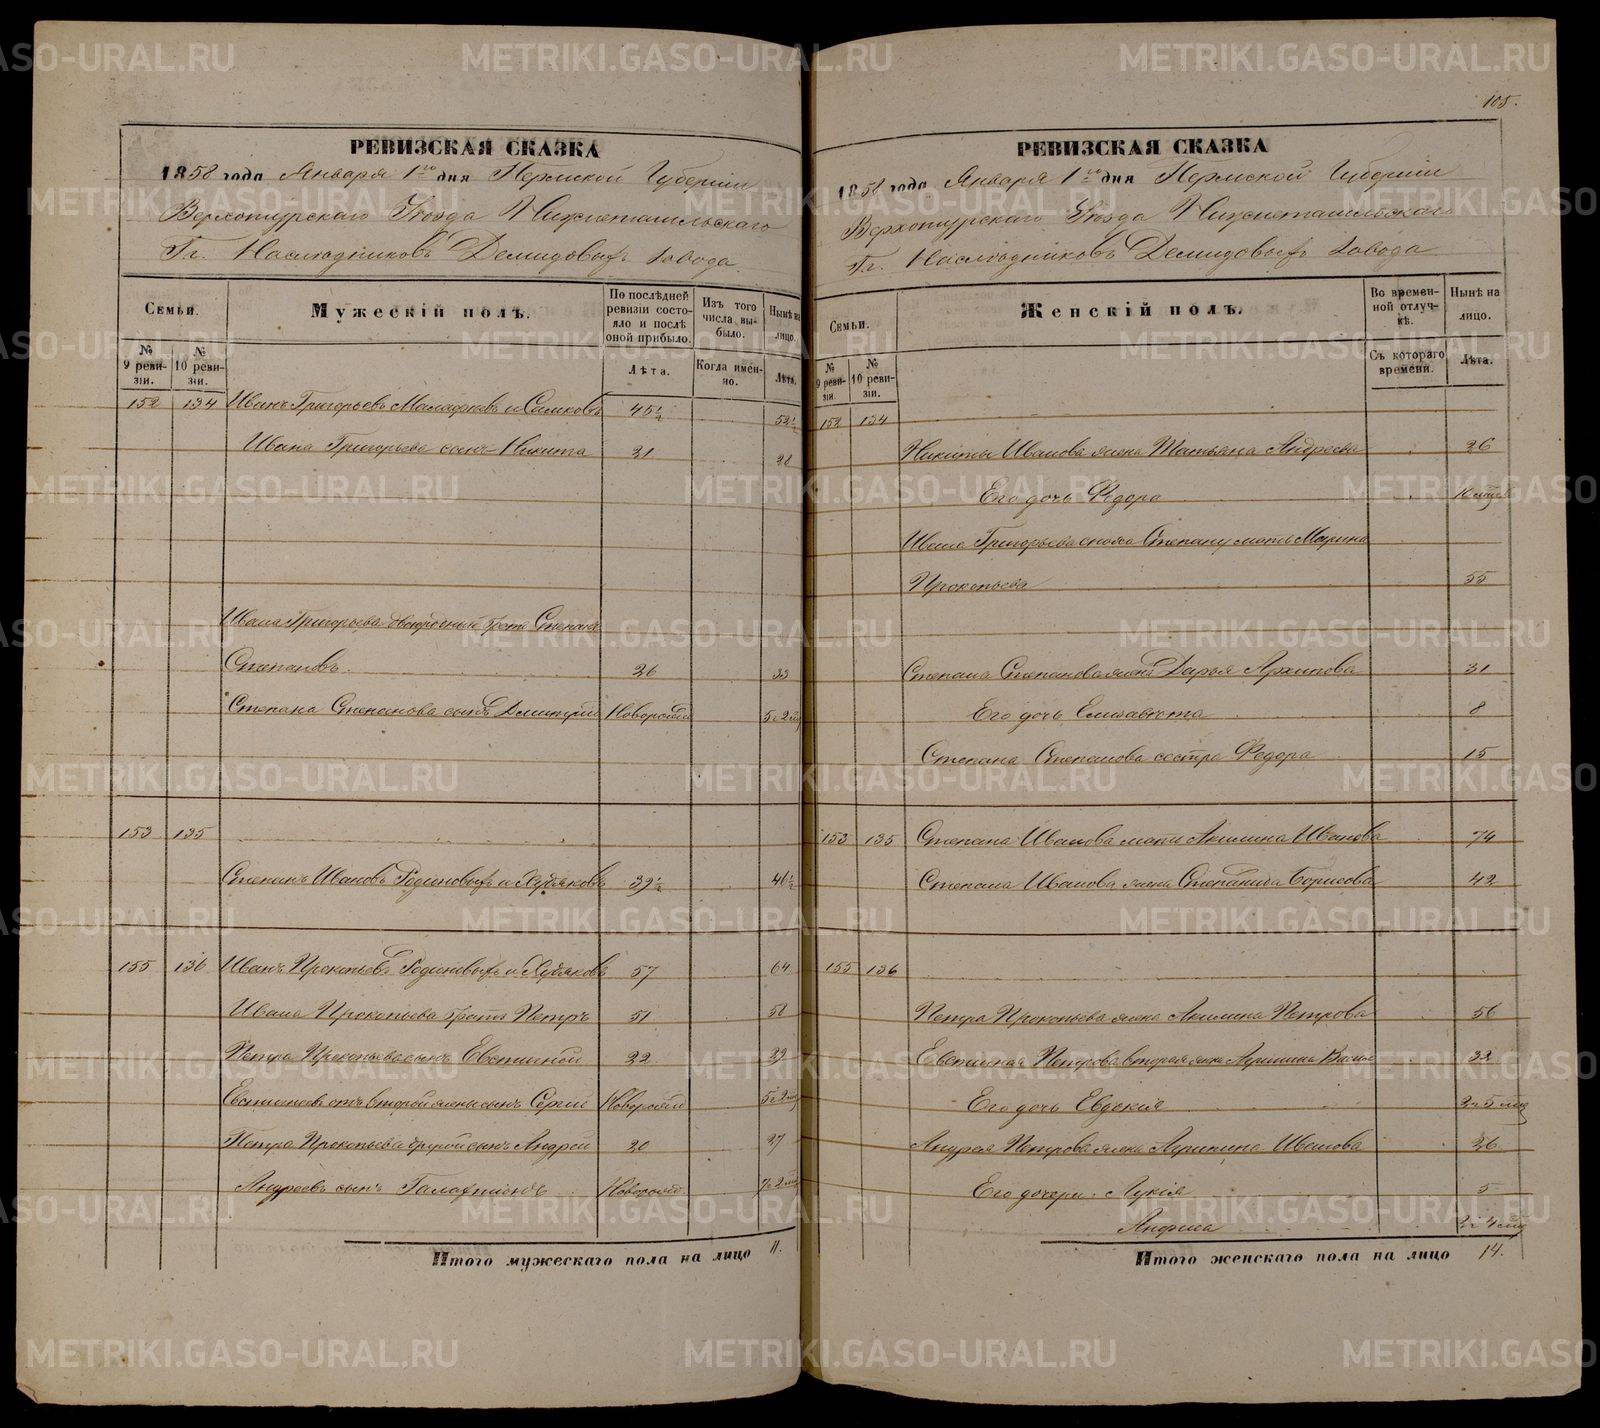 105.
РЕВИЗСКАЯ СКАЗКА
1858 года Января 1го дня Пермской Губерніи
Верхотурскаго Уѣзда Нижнетагильскаго
Гг. Наслѣдниковъ Демидовыхъ Завода
Семьи.
Мужескій полъ.
По послѣдней ревизіи состояло и послѣ оной прибыло.
Изъ того числа выбыло.
Нынѣ на лицо.
№ 9 ревизіи.
№ 10 ревизіи.
Лѣта.
Когда именно.
Лѣта.
152 134 Иванъ Григорьевъ и 45½ 52½
Ивана Григорьева сынъ Никита 21 28
Ивана Григорьева двоюродный братъ Степанъ
Степановъ 26 33
Степана Степанова сынъ Дмитрій Новорожд 5 г 2 мц
153 135
Степанъ Ивановъ Родионовыхъ и Худяковъ 39½ 46½
155 136 Иванъ Прокопьевъ Родионовыхъ и Худяковъ 57 64
Ивана Прокопьева братъ Петръ 51 58
Петра Прокопьева сынъ Евстигней 22 29
Евстигнеевъ отъ второй жены сынъ Сергій Новорожд 5 г 2 мц
Петра Прокопьева другой сынъ Андрей 20 27
Андреевъ сынъ Галактіонъ Новорожд 7 г 2 мц
Итого мужескаго пола на лицо 11.
РЕВИЗСКАЯ СКАЗКА
1858 года Января 1го дня Пермской Губерніи
Верхотурскаго Уѣзда Нижнетагильскаго
Гг. Наслѣдниковъ Демидовыхъ Завода
Семьи.
Женскій полъ.
Во временной отлучкѣ.
Нынѣ на лицо.
№ 9 ревизіи.
№ 10 ревизіи.
Съ котораго времени.
Лѣта.
152 134
Никиты Иванова жена Татьяна Андреева 26
Его дочь Федора 10 мцв
Ивана Григорьева сноха Степану мать Марина
Прокопьева 55
Степана Степанова жена Дарья Архипова 31
Его дочь Елисавета 8
Степана Степанова сестра Федора 15
153 135 Степана Иванова мать Акилина Иванова 74
Степана Иванова жена Степанида Борисова 42
155 136
Петра Прокопьева жена Акилина Петрова 56
Евстигнея Петрова вторая жена 32
Его дочь Евдокія 2 г 5 мц
Андрея Петрова жена Иванова 26
Его дочери: Лукія 5
Анфиса 2 г 4 мц
Итого женскаго пола на лицо 14.
METRIKI.GASO-URAL.RU